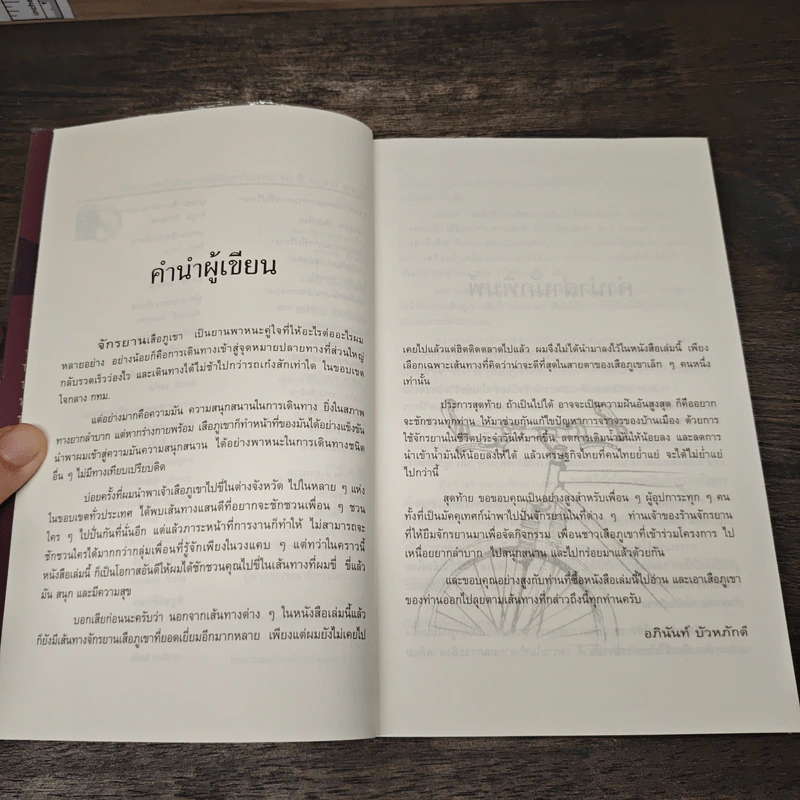 คำนำผู้เขียน
จักรยานเสือภูเขา เป็นยานพาหนะคู่ใจที่ให้อะไรต่ออะไรผม
หลายอย่าง อย่างน้อยก็คือการเดินทางเข้าสู่จุดหมายปลายทางที่ส่วนใหญ่
กลับรวดเร็วว่องไว และเดินทางได้ไม่ช้าไปกว่ารถเก๋งสักเท่าใด ในขอบเขต
ใจกลาง กทม.
แต่อย่างมากคือความมัน ความสนุกสนานในการเดินทาง ยิ่งในสภาพ
ทางยากลำบาก แต่หากร่างกายพร้อม เสือภูเขาก็ทำหน้าที่ของมันได้อย่างแข็งขัน
นำพาผมเข้าสู่ความมันความสนุกสนาน ได้อย่างพาหนะในการเดินทางชนิด
อื่น ๆ ไม่มีทางเทียบเปรียบติด
บ่อยครั้งที่ผมนำพาเจ้าเสือภูเขาไปขี่ในต่างจังหวัด ไปในหลาย ๆ แห่ง
ในขอบเขตทั่วประเทศ ได้พบเส้นทางแสนดีที่อยากจะชักชวนเพื่อน ๆ ชวน
ใคร ๆ ไปปั่นกันที่นั่นอีก แต่แล้วภาระหน้าที่การงานก็ทำให้ ไม่สามารถจะ
ชักชวนใครได้มากกว่ากลุ่มเพื่อนที่รู้จักเพียงในวงแคบ ๆ แต่ทว่าในคราวนี้
หนังสือเล่มนี้ ก็เป็นโอกาสอันดีให้ผมได้ชักชวนคุณไปขี่ในเส้นทางที่ผมขี่ ขี่แล้ว
มัน สนุก และมีความสุข
บอกเสียก่อนนะครับว่า นอกจากเส้นทางต่าง ๆ ในหนังสือเล่มนี้แล้ว
ก็ยังมีเส้นทางจักรยานเสือภูเขาที่ยอดเยี่ยมอีกมากหลาย เพียงแต่ผมยังไม่เคยไป
เคยไปแล้วแต่ฮิตติดตลาดไปแล้ว ผมจึงไม่ได้นำมาลงไว้ในหนังสือเล่มนี้ เพียง
เลือกเฉพาะเส้นทางที่คิดว่าน่าจะดีที่สุดในสายตาของเสือภูเขาเล็ก ๆ คนหนึ่ง
เท่านั้น
ประการสุดท้าย ถ้าเป็นไปได้ อาจจะเป็นความฝันอันสูงสุด ก็คืออยาก
จะชักชวนทุกท่าน ให้มาช่วยกันแก้ไขปัญหาการจราจรของบ้านเมือง ด้วยการ
ใช้จักรยานในชีวิตประจำวันให้มากขึ้น ลดการเติมน้ำมันให้น้อยลง และลดการ
นำเข้าน้ำมันให้น้อยลงให้ได้ แล้วเศรษฐกิจไทยที่คนไทยย่ำแย่ จะได้ไม่ย่ำแย่
ไปกว่านี้
สุดท้าย ขอขอบคุณเป็นอย่างสูงสำหรับเพื่อน ๆ ผู้อุปการะทุก ๆ คน
ทั้งที่เป็นมัคคุเทศก์นำาไปปั่นจักรยานในที่ต่าง ๆ ท่านเจ้าของร้านจักรยาน
ที่ให้ยืมจักรยานมาเพื่อจัดกิจกรรม เพื่อนชาวเสือภูเขาที่เข้าร่วมโครงการ ไป
เหนื่อยยากลำบาก ไปสนุกสนาน และไปกร่อยมาแล้วด้วยกัน
และขอบคุณอย่างสูงกับท่านที่ซื้อหนังสือเล่มนี้ไปอ่าน และเอาเสือภูเขา
ของท่านออกไปลุยตามเส้นทางที่กล่าวถึงนี้ทุกท่านครับ
อภินันท์ บัวหภักดี